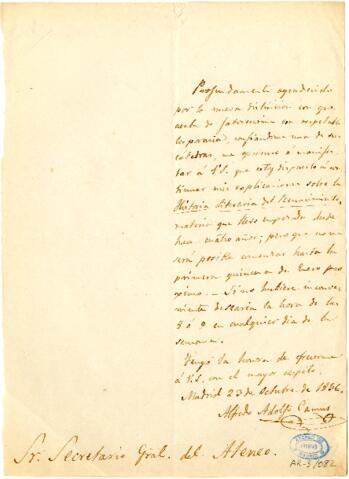 Profundamente agradecido
por la nueva distincion con que
acaba de favorecerme esa respetable
corporacion, confiandome una de sus
catedras, me apresuro á manifes-
tar á V.S. que estoy dispuesto á con-
tinuar mis esplicaciones sobre la
Historia literaria del Renacimiento,
materia que llevo empezada desde
hace cuatro años; pero que no me
será posible comenzar hasta la
primera quincena de Enero pro-
ximo. — Si no hubiere inconve-
niente desearia la hora de las
8 á 9 en cualquier dia de la
semana.
Tengo la honra de ofrecerme
á V.S. con el mayor respeto.
Madrid 23 de Octubre de 1856.
Alfredo Adolfo Camus
Sr. Secretario Gral. del Ateneo.
AR-3/082